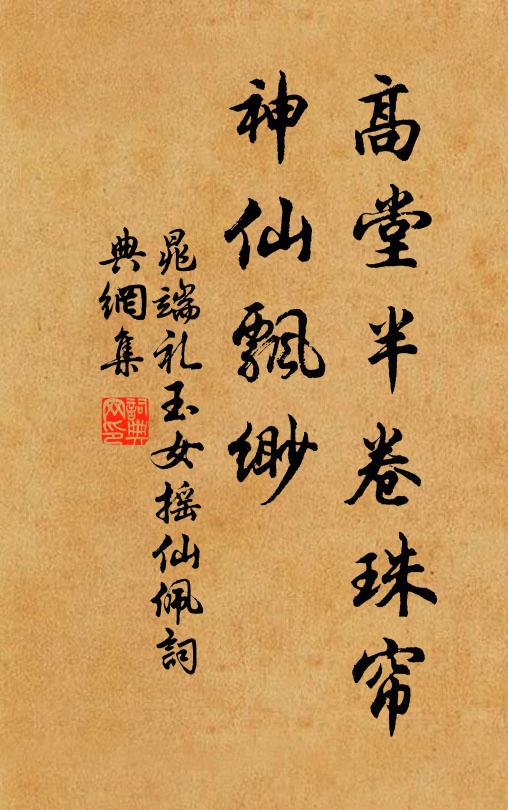 高堂半卷珠帘
神仙飄缈
晁端礼玉女摇仙佩詞
典網集
詞典網印